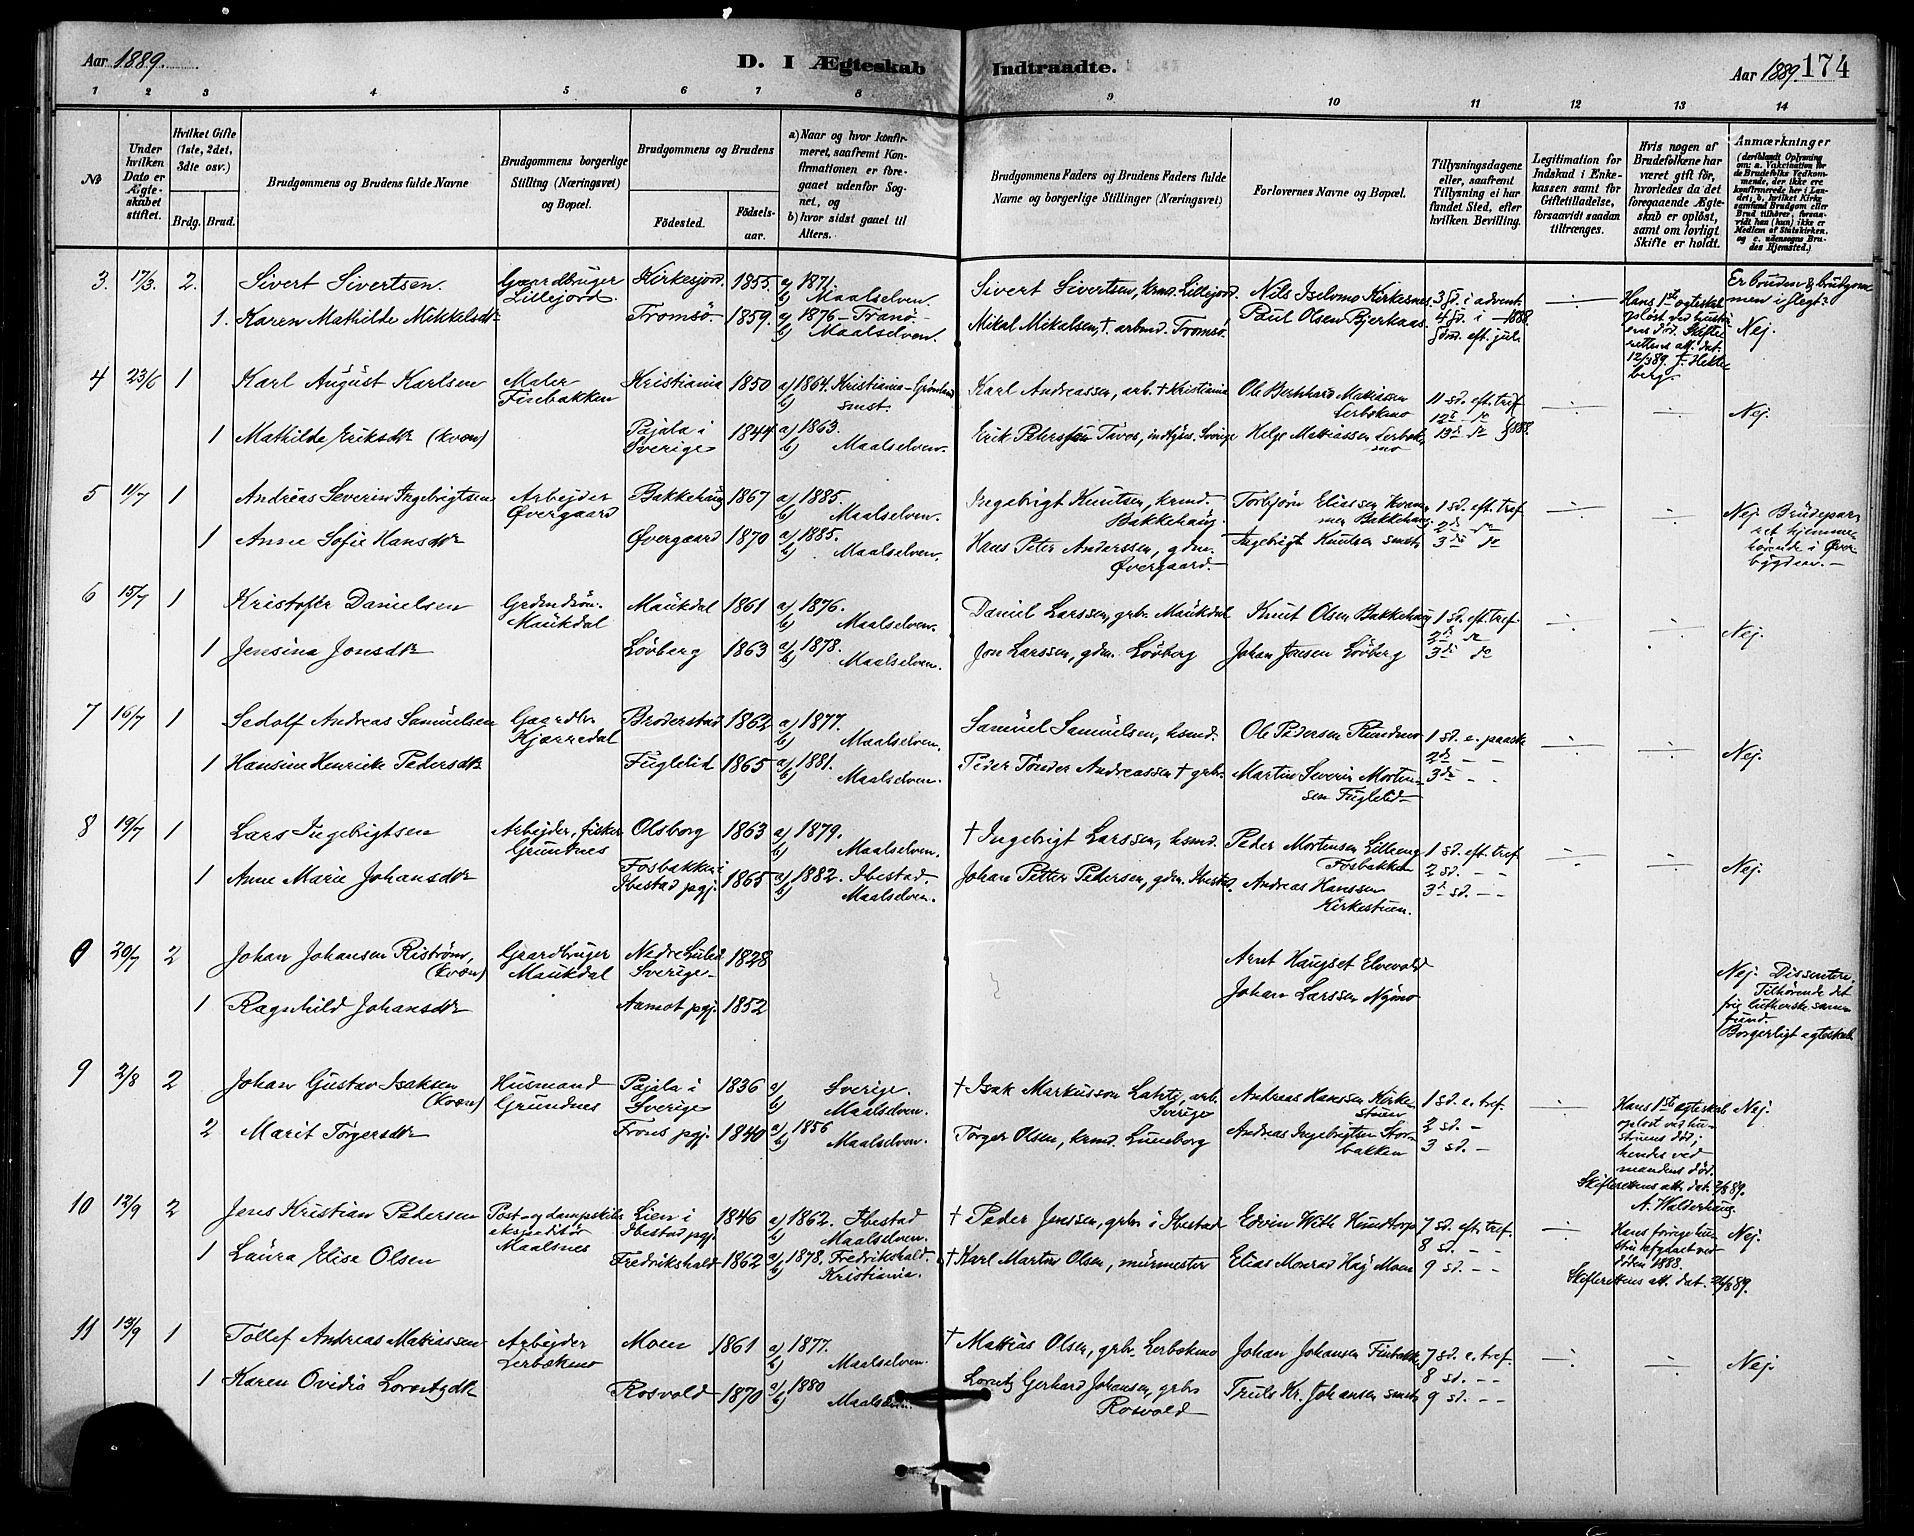 Aar 1889.
D. I Ægteskab Indtraadte.
Aar 1889. 174
1 2 3 4 5 6 7 8 9 10 11 12 13 14
No
Under hvilken Dato er Ægteskabet stiftet.
Hvilket Gifte (1ste, 2det, 3die osv.)
Brdg. Brud.
Brudgommens og Brudens fulde Navne
Brudgommens borgerlige Stilling (Næringsvei) og Bopæl.
Brudgommens og Brudens
Fødested. Fødselsaar.
a) Naar og hvor konfirmeret, saafremt Konfirmationen er foregaaet udenfor Sognet, og
b) hvor sidst gaaet til Alters.
Brudgommens Faders og Brudens Faders fulde Navne og borgerlige Stillinger (Næringsvei)
Forlovernes Navne og Bopæl.
Tillysningsdagene eller, saafremt Tillysning ei har fundet Sted, efter hvilken Bevilling.
Legitimation for Indskud i Enkekassen samt for Giftetilladelse, forsaavidt saadan tiltrænges.
Hvis nogen af Brudefolkene har været gift før, hvorledes da det foregaaende Ægteskab er opløst, samt om lovligt Skifte er holdt.
Anmærkninger
(deriblandt Oplysning om: a. Vakcination for de Brudefolks Vedkommende, der ikke ere konfirmerede her i Landet; b. hvilket Kirkesamfund Brudgom eller Brud tilhører, forsaavidt han (hun) ikke er Medlem af Statskirken, og c. udensogns Brudes Hjemsted.)
3. 17/3. 2. Sivert Sivertsen. Gaardbruger Lillejord. Kirkesjord 1855. a) 1871. b) Maalselven. Sivert Sivertsen, krmd. Lillejord. Nils Iselvmo Kirkesnes 3 sd. i advent. ÷ Hans 1ste ægteskab opløst ved hustruens død. Skifterettens att. dat. 12/3 89 Er bruden & brudgommen i slegt?
1. Karen Mathilde Mikkelsdtr Tromsø. 1859. a) 1876 - Tranø - b) Maalselven. Mikal Mikalsen, †. arbmd. Tromsø. Paul Olsen Bjerkaas 4 sd. i - 1888. sønd. eft. jul. Nej.
4 23/6 1 Karl August Karlsen Maler Finbakken Kristiania 1850 a) 1864. Kristiania - Grønland b) smst. Karl Andreassen, arb. † Kristiania Ole Bernhard Matiassen Lerbekmo 11 sd. eft. tref. ÷ ÷ Nej.
1 Mathilde Eriksdtr (kvæn) Pajala i Sverige 1844 a) 1863. b) Maalselven. Helge Matiassen Lerbekmo 12te de 13de de 1888.
5 11/7 1 Andreas Severin Ingebrigtsen Arbejder Øvergaard Bakkehaug 1867 a) 1885. b) Maalselven. Ingebrigt Knutsen, krmd. Bakkehaug. Torbjørn Eliassen Bakkehaug. 1 sd. eft. tref. ÷ ÷ Nej. Brudeparret hjemmehørende i Øverbygden. -
1 Anne Sofie Hansdtr Øvergaard 1870 a) 1885. b) Maalselven. Hans Peter Anderssen, gdm. Øvergaard. Ingebrigt Knutsen smsts 2de de 3de de
6 15/7 1 Kristofer Danielsen Maukdal Maukdal 1861 a) 1876. b) Maalselven. Daniel Larssen, grbr. Maukdal Knut Olsen Bakkehaug 1 sd. eft. tref. ÷ ÷ Nej.
1 Jensina Jonsdtr Løvberg 1863 a) 1878. b) Maalselven. Jon Larssen, gdm. Løvberg Johan Jonsen Løvberg 2de de 3de de
7 16/7 1 Sedolf Andreas Samuelsen Gaardbr. Kjærredal Broderstad 1862 a) 1877. b) Maalselven. Samuel Samuelsen, hsmd. Ole Pedersen Rundmo 1 sd. e. paaske ÷ ÷ Nej.
1 Hansine Henrikke Pedersdtr Fuglelid 1865 a) 1881. b) Maalselven. Peder Tønder Andreassen † grbr. Martin Severin Mortensen Fuglelid - 2de - - 3de - -
8 19/7 1 Lars Ingebrigtsen Arbejder, fisker Grundnes Olsborg 1863 a) 1879. b) Maalselven. † Ingebrigt Larssen, hsmd. Peder Mortensen Lilleeng Fosbakken 1 sd. eft. tref. ÷ ÷ Nej.
1 Anne Marie Johansdtr Fosbakken i Ibestad pgj. 1865 a) 1882. Ibestad. b) Maalselven. Johan Petter Pedersen, gdm. Ibestad. Andreas Hanssen Kirkestuen. 2 sd. - - 3de sd. - -
0 20/7 2 Johan Johansen Riström, (kvæn) Gaardbruger Maukdal Nedre Luleå Sverige - 1828 Arnt Haugset Elvevold Nej. Dissentere. Tilhørende det frie lutherske samfund. Borgerligt ægteskab
1 Ragnhild Johansdtr Aamot pgj. 1852 Johan Larssen Nymo
9 2/8 2 Johan Gustav Isaksen (kvæn) Husmand Grundnes Pajala i Sverige 1836 a) Sverige. b) Maalselven. † Isak Markusson Lahti, arb. Sverige Andreas Hanssen Kirkestuen 1 sd. e. tref. ÷ Hans 1ste ægteskab opløst ved hustruens død; hendes ved mandens død. Skifterettens att. dat. 2/8 89. Nej.
2 Marit Torgersdtr Frons pgj. 1840 a) 1856 b) Maalselven. Torger Olsen, krmd. Luneborg Andreas Ingebrigtsen Storbakken 2 sd. - 3 sd. -
10 12/9 2 Jens Kristian Pedersen Post- og dampskibsekspeditør Maalsnes Lien i Ibestad pgj. 1846 a) 1862. Ibestad b) Maalselven. † Peder Jenssen, grbr. i Ibestad Edvin With Hundtorp 7 sd. eft. tref. ÷ Hans forrige hustru afgaaet ved døden 1888. Skifterettens att. dat. Nej.
1 Laura Elisa Olsen Fredrikshald 1862 a) 1878. Fredrikshald. b) Kristiania. † Karl Martin Olsen, murmester Elias Monrad Høg Moen 8 sd. - - 9 sd. - -
11 13/9 1 Tollef Andreas Matiassen Arbejder Lerbekmo Moen 1861 a) 1877. b) Maalselven. † Mathias Olsen, grbr. Lerbekmo Johan Johansen Finbakk. 7 sd. e. tref. ÷ ÷ Nej.
1 Karen Ovidia Lorentzdtr Rosvold 1870 a) 1880 b) Maalselven. Lorntz Gerhard Johansen, grbr Rosvold Truls Kr. Johansen smsts 8 sd. - - 9 sd. - -